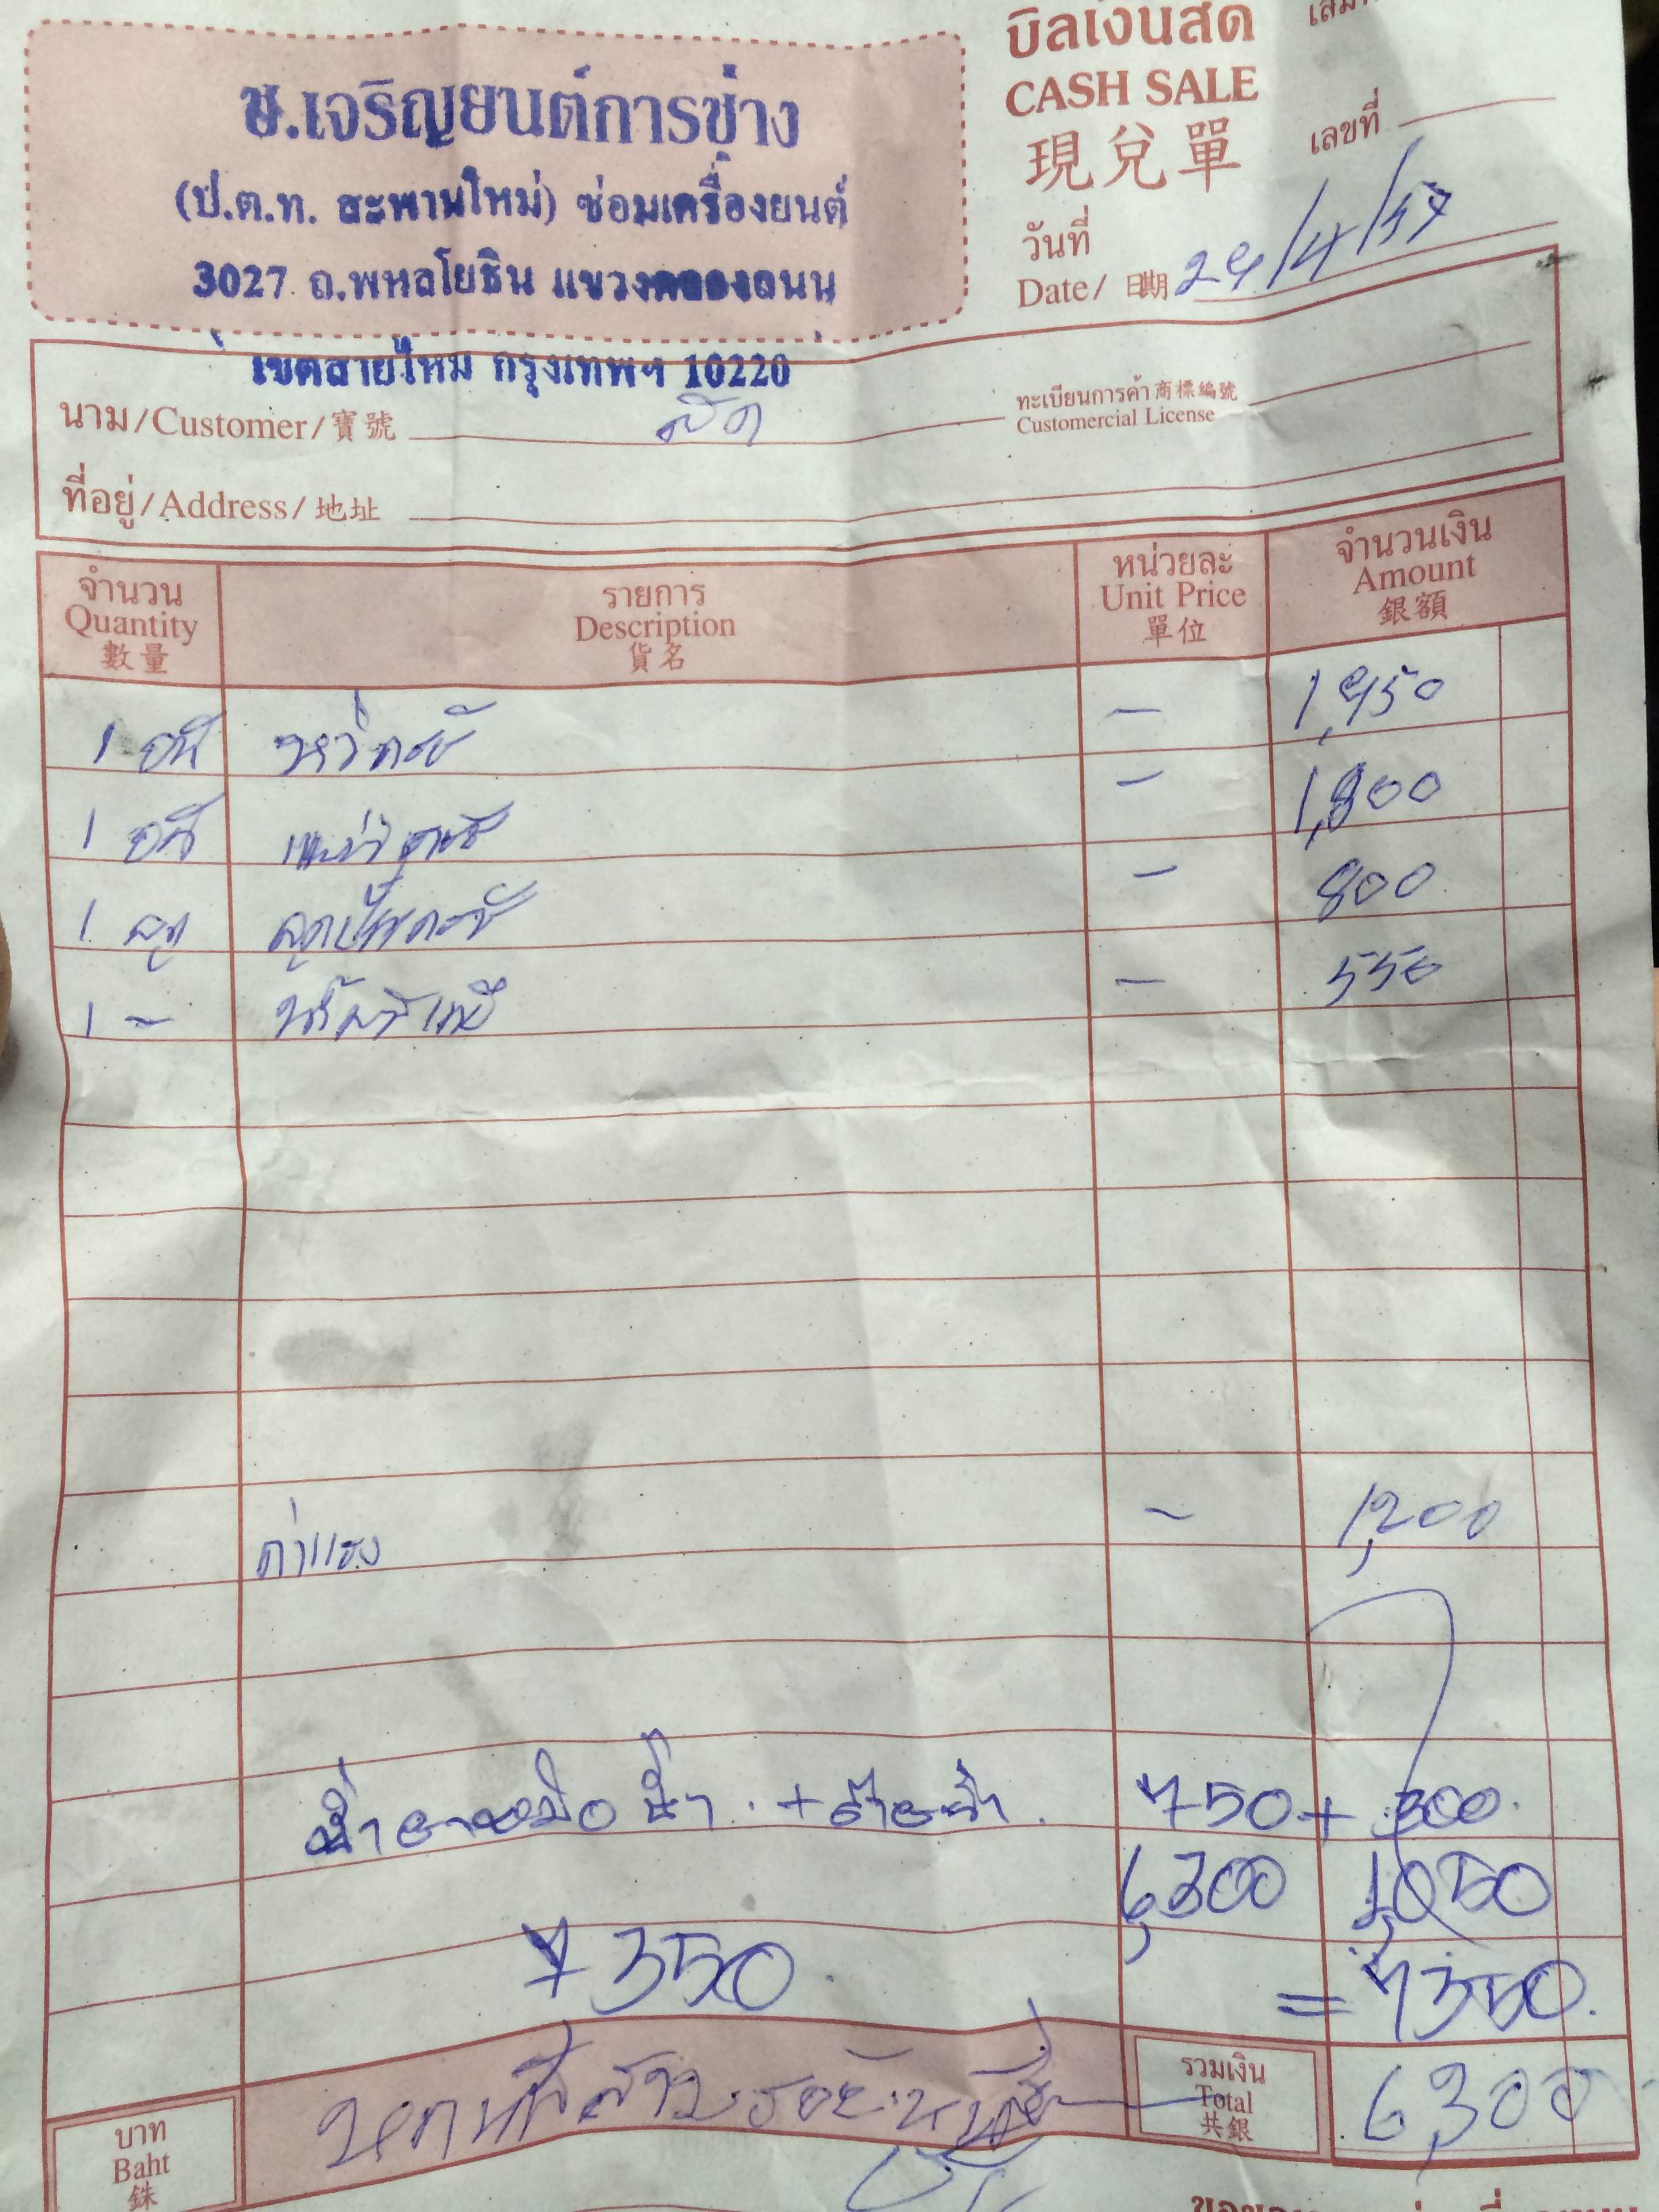 บิลเงินสด
CASH SALE
現兌單
เลขที่
วันที่
Date/ 日期 29/4/57
ช.เจริญยนต์การช่าง
(ป.ต.ท. สะพานใหม่) ซ่อมเครื่องยนต์
3027 ถ.พหลโยธิน แขวงคลองถนน
เขตสายไหม กรุงเทพฯ 10220
นาม/Customer/寶號 สด
ทะเบียนการค้า 商標編號
Customercial License
ที่อยู่/Address/地址
จำนวน รายการ หน่วยละ จำนวนเงิน
Quantity Description Unit Price Amount
數量 貨名 單位 銀額
1 อัน หวีคลัช — 1,950
1 อัน แผ่นคลัช — 1,800
1 ลูก ลูกปืนคลัช — 800
1 — — 550
ค่าแรง — 1,200
น้ำยาหม้อน้ำ + ถ่ายน้ำ 750 + 300
6,300 1,050
7350 = 7350
บาท
Baht
銖
หกพันสามร้อยบาท
รวมเงิน
Total
共銀
6,300